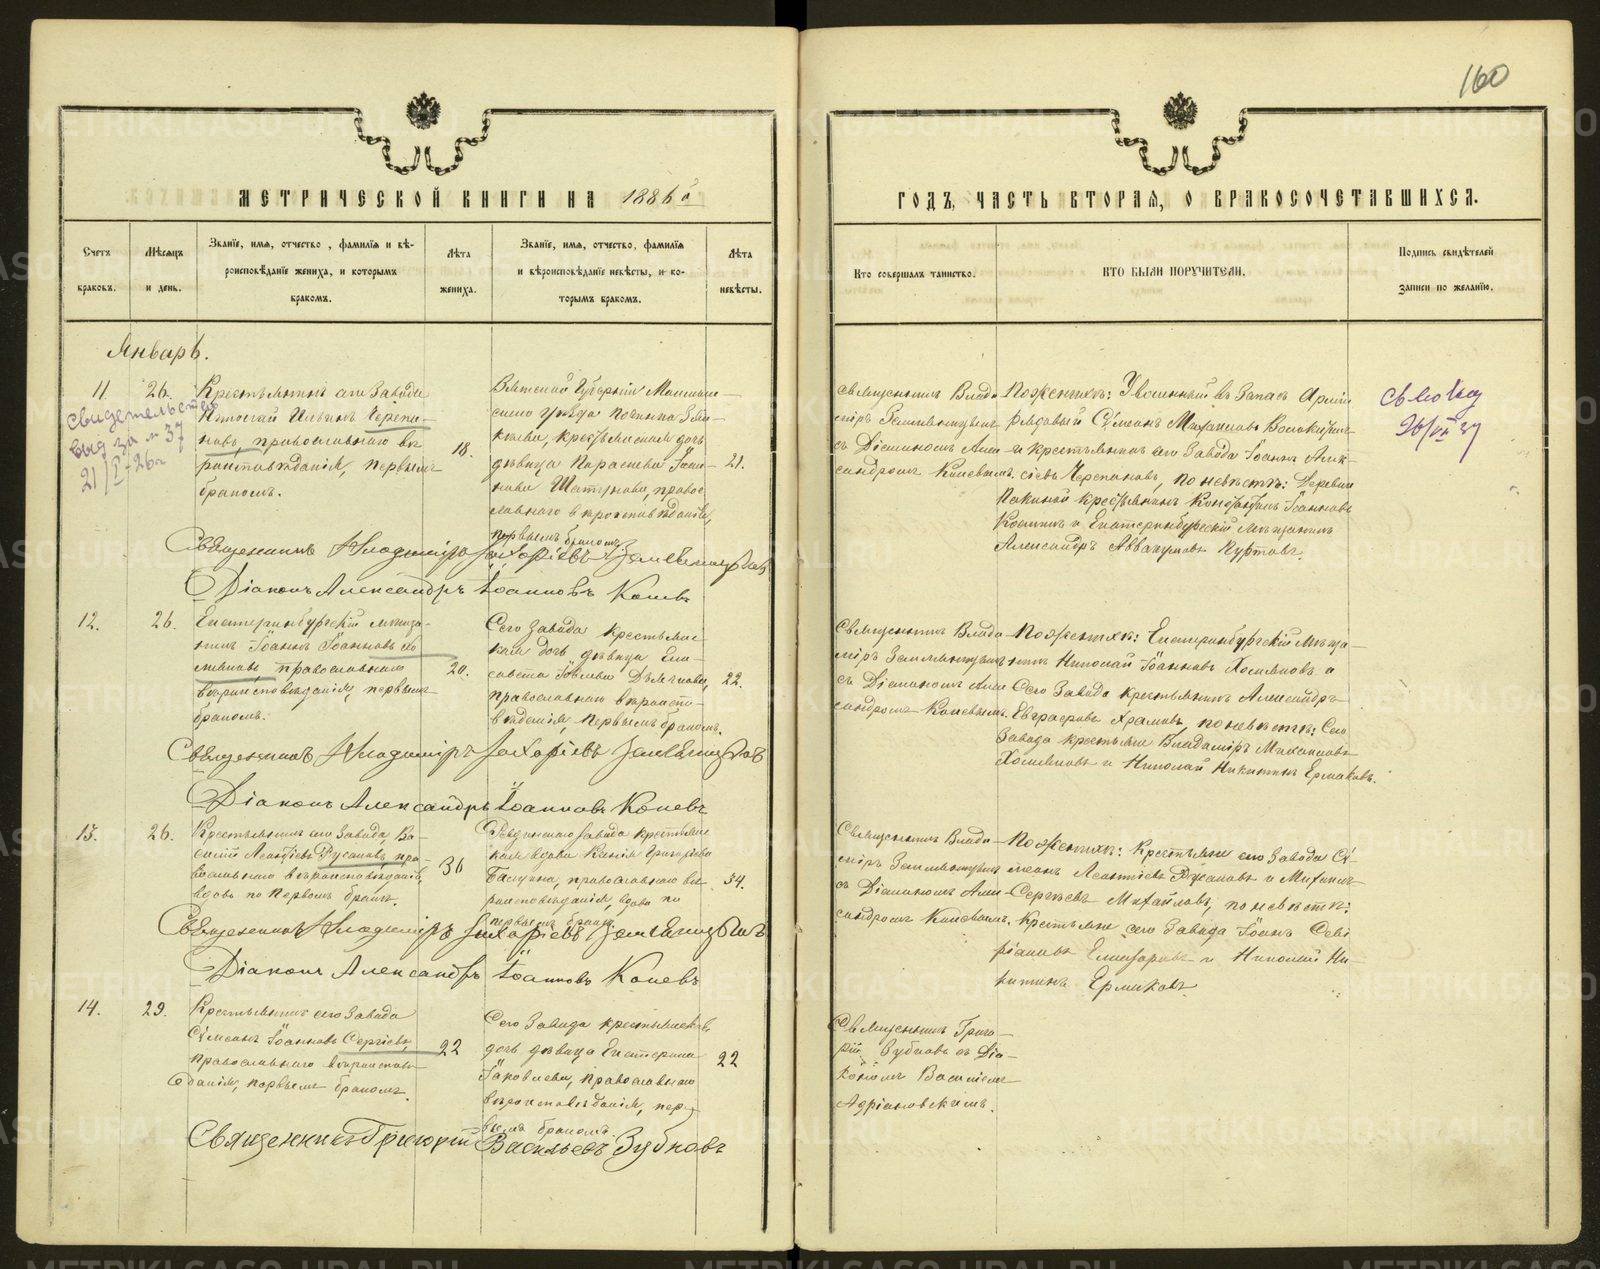 160
МЕТРИЧЕСКОЙ КНИГИ НА 1886й
ГОДЪ, ЧАСТЬ ВТОРАЯ, О БРАКОСОЧЕТАВШИХСЯ.
Счетъ браковъ.
Мѣсяцъ и день.
Званіе, имя, отчество, фамилія и вѣ-
роисповѣданіе жениха, и которымъ
бракомъ.
Лѣта
жениха.
Званіе, имя, отчество, фамилія
и вѣроисповѣданіе невѣсты, и ко-
торымъ бракомъ.
Лѣта
невѣсты.
Кто совершалъ таинство.
КТО БЫЛИ ПОРУЧИТЕЛИ.
Подпись свидѣтелей
записи по желанію.
Январь.
11. 26.
Крестьянинъ сего Завода
Черепа-
новъ, православнаго вѣ-
роисповѣданія, первымъ
бракомъ.
18.
Вятской Губерніи
уѣзда Починка
крестьянская дочь
дѣвица Параскева
православнаго вѣроисповѣданія,
первымъ бракомъ
21.
Священникъ Влади-
міръ Земляницынъ
съ Діакономъ Алек-
сандромъ Коневымъ.
По женихѣ: Уволенный въ Запасъ Арміи
рядовый Сѵмеонъ Михаиловъ
и крестьянинъ сего Завода Іоаннъ Алек-
сѣевъ Черепановъ, по невѣстѣ: Деревни
крестьянинъ Іоанновъ
и Екатеринбургскій мѣщанинъ
Александръ Аввакумовъ Куртовъ.
свидетельство
выд за № 37
21/I-26г
26/VII 37
Священникъ Владиміръ Захаріевъ Земляницынъ
Діаконъ Александръ Іоанновъ Коневъ
12. 26.
Екатеринбургскій мѣща-
нинъ Іоаннъ Іоанновъ Хо-
мяковъ, православнаго
вѣроисповѣданія, первымъ
бракомъ.
20.
Сего Завода крестьянс-
кая дочь дѣвица Ели-
савета
православнаго вѣроиспо-
вѣданія, первымъ бракомъ.
22.
Священникъ Влади-
міръ Земляницынъ
съ Діакономъ Алек-
сандромъ Коневымъ.
По женихѣ: Екатеринбургскій мѣща-
нинъ Николай Іоанновъ Хомяковъ и
Сего Завода крестьянинъ Александръ
Евграфовъ Храмовъ, по невѣстѣ: Сего
Завода крестьяне Владиміръ Михаиловъ
Хомяковъ и Николай Никитинъ Ермаковъ.
Священникъ Владиміръ Захаріевъ Земляницынъ
Діаконъ Александръ Іоанновъ Коневъ
13. 26.
Крестьянинъ сего Завода, Ва-
силій Леонтіевъ Русановъ, пра-
вославнаго вѣроисповѣданія,
вдовъ по первомъ бракѣ.
36
Ревдинскаго Завода крестьянс-
кая вдова Ксенія Григоріева
православнаго вѣ-
роисповѣданія, вдова по
первымъ бракѣ
34.
Священникъ Влади-
міръ Земляницынъ
съ Діакономъ Алек-
сандромъ Коневымъ.
По женихѣ: Крестьяне сего Завода Сѵ-
меонъ Леонтіевъ Русановъ и
Сергѣевъ Михайловъ, по невѣстѣ:
Крестьяне сего Завода Іоаннъ Севе-
ріановъ Елизаровъ и Николай Ни-
китинъ Ермаковъ.
Священникъ Владиміръ Захаріевъ Земляницынъ
Діаконъ Александръ Іоанновъ Коневъ
14. 29.
Крестьянинъ сего Завода
Сѵмеонъ Іоанновъ Сергѣевъ,
православнаго вѣроисповѣ-
данія, первымъ бракомъ.
22
Сего Завода крестьянская
дочь дѣвица Екатерина
Іаковлева, православнаго
вѣроисповѣданія, пер-
вымъ бракомъ.
22
Священникъ Григо-
рій Зубковъ съ Діа-
кономъ Василіемъ
Адріановскимъ.
Священникъ Григорій Васильевъ Зубковъ
METRIKI.GASO-URAL.RU